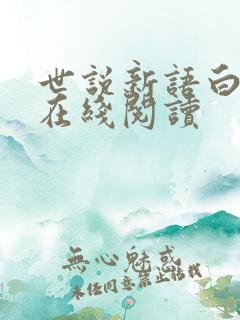 世說新語白
在綫閱讀
無心魅惑
未經同意禁止轉載